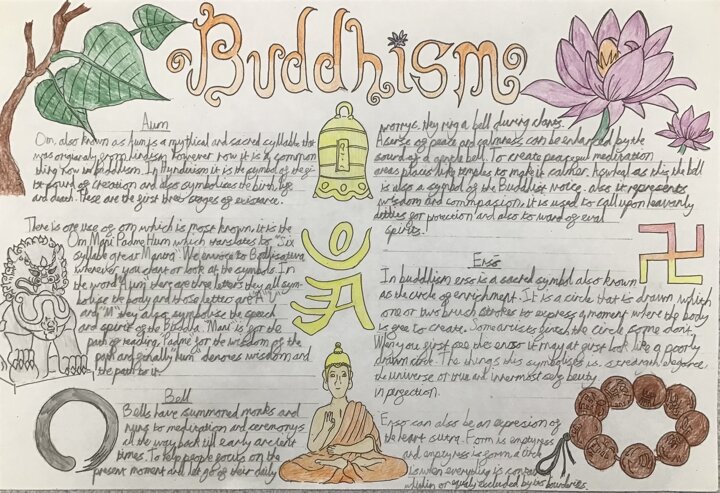 Buddhism
Aum
Om, also known as Aum is a mythical and sacred syllable that
was originaly from Hindism however now it is a common
thing now in Buddism. In Hynduism it is the symbol of the
pt sound of creation and also symbolizes the birth, life
and death. These are the first three stages of existence.
There is one use of om which is most known, it is the
Om Mani Padme Hum which translates to "Six
syllable great Mantra". We envoce to Bodhisatva
whenever you chant or look at the symbols. In
the word Aum there are three letters they all sym-
bolise the body and those letters are "A" "U"
and "M" they also symbolise the speech
and spirit of the Buddla. "Mani" is for the
path of teaching, Padme for the wisdom of the
path and finally hum" denores wisdom and
the path to it.
Bell
Bells have summoned monks and
nuns to meditation and ceremonys
all the way back till early ancient
times. To help people focus on the
present moment and let go of their daily
worrys, they ring a bell during chants.
A sense of peace and calmness can be enhanced by the
sound of a gentle bell. To create peaceful meditation
areas places like temples to make it calmer. As wheal as this the bell
is also a symbol of the Buddhist voice. also it represents
wisdom and commpasion. It is used to call upon heavenly
deities for protection and also to ward of eval
spirits.
Enso
In buddhism enso is a sacred symbol also known
as the circle of enrichment. It is a circle that is drawn which
one or two bruch strokes to express a moment where the body
is free to create. Some artists finish the circle some don't.
When you first see the enso it may at first look like a poorly
drawn circle. The things this symbolises is, strength, elegance,
the universe of true and innermost self, beauty
in perfection.
Enso can also be an expresion of
the heart sutra. Form is emptyness
and emptyness is form. a circle
is when everything is contained
within or equaly excluded by its boundaries.